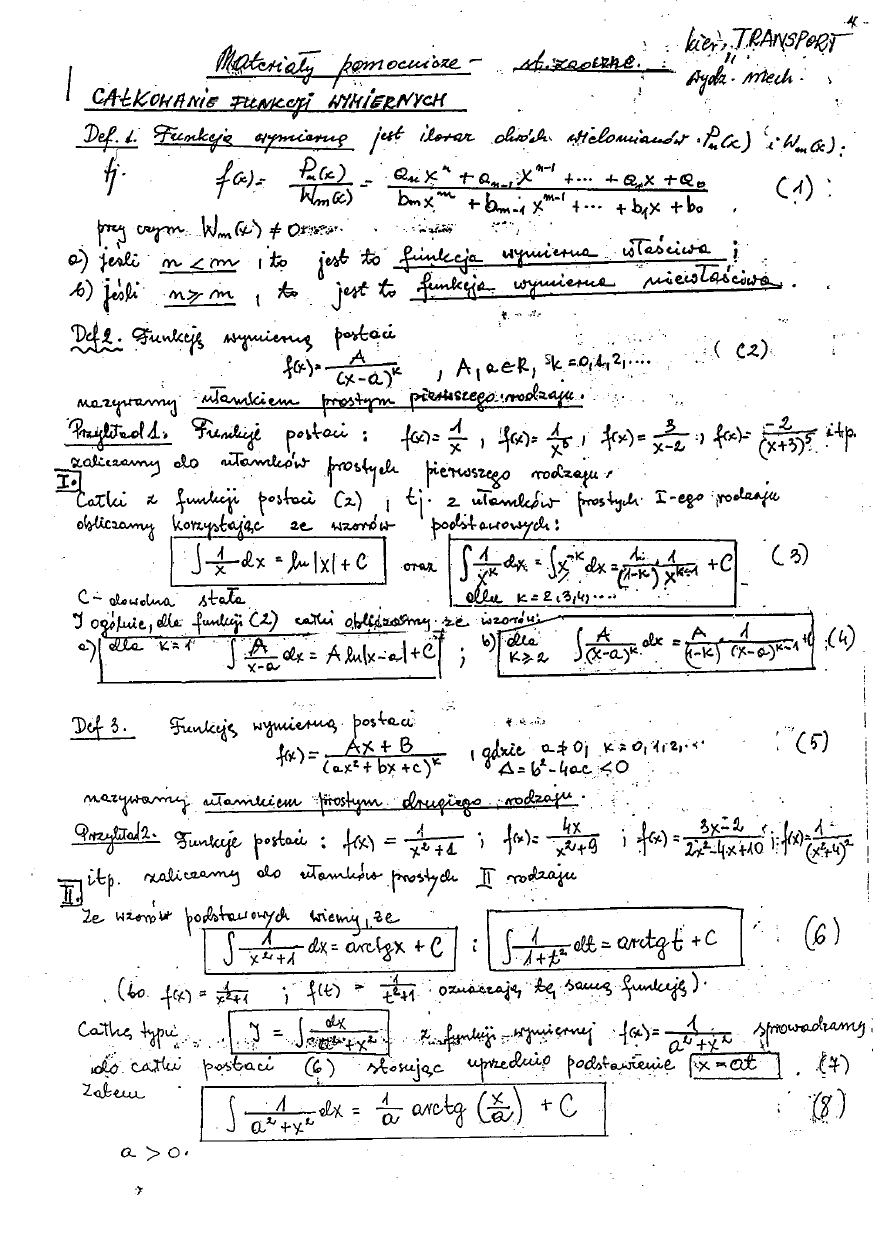 kier. TRANSPORT
Materiały pomocnicze – st. zaoczne.
wydz. mech.
CAŁKOWANIE FUNKCJI WYMIERNYCH
Def. 1. Funkcją wymierną jest iloraz dwóch wielomianów Pn(x) i Wm(x);
tj. f(x) = Pn(x)/Wm(x) = (aₙxⁿ + aₙ₋₁xⁿ⁻¹ + ... + a₁x + a₀)/(bₘxᵐ + bₘ₋₁xᵐ⁻¹ + ... + b₁x + b₀) (1)
przy czym Wm(x) ≠ 0
a) jeśli n < m, to jest to funkcja wymierna właściwa;
b) jeśli n ≥ m, to jest to funkcja wymierna niewłaściwa.
Def 2. Funkcję wymierną postaci
f(x) = A/(x-a)ᵏ , A, a ∈ R, k = 0,1,2,.... (2)
nazywamy ułamkiem prostym pierwszego rodzaju.
Przykład 1. Funkcje postaci: f(x) = 1/x, f(x) = 1/x⁵, f(x) = 3/(x-2), f(x) = -2/(x+3)⁵ itp.
zaliczamy do ułamków prostych pierwszego rodzaju.
I.
Całki z funkcji postaci (2), tj. z ułamków prostych I-ego rodzaju
obliczamy korzystając ze wzorów podstawowych:
∫ 1/x dx = ln|x| + C oraz ∫ 1/xᵏ dx = ∫ x⁻ᵏ dx = 1/(1-k) · 1/xᵏ⁻¹ + C (3)
dla k = 2,3,4,....
C – dowolna stała
I ogólnie, dla funkcji (2) całki obliczamy ze wzorów:
a) dla k = 1 ∫ A/(x-a) dx = A ln|x-a| + C ; b) dla k ≥ 2 ∫ A/(x-a)ᵏ dx = A/(1-k) · 1/(x-a)ᵏ⁻¹ + C (4)
Def 3. Funkcję wymierną postaci
f(x) = (Ax + B)/(ax² + bx + c)ᵏ , gdzie a ≠ 0, k = 0,1,2,... (5)
Δ = b² - 4ac < 0
nazywamy ułamkiem prostym drugiego rodzaju.
Przykład 2. Funkcje postaci: f(x) = 1/(x²+1) ; f(x) = 4x/(x²+9) ; f(x) = (3x-2)/(2x²-4x+10) ; f(x) = 1/(x²+4)²
itp. zaliczamy do ułamków prostych II rodzaju
II.
Ze wzorów podstawowych wiemy, że
∫ 1/(x²+1) dx = arctgx + C ; ∫ 1/(1+t²) dt = arctgt + C (6)
(bo f(x) = 1/(x²+1) ; f(t) = 1/(t²+1) oznaczają tę samą funkcję).
Całkę typu J = ∫ dx/(a²+x²) z funkcji wymiernej f(x) = 1/(a²+x²) sprowadzamy
do całki postaci (6) stosując uprzednio podstawienie x = at . (7)
Zatem
∫ 1/(a²+x²) dx = 1/a arctg (x/a) + C (8)
a > 0.